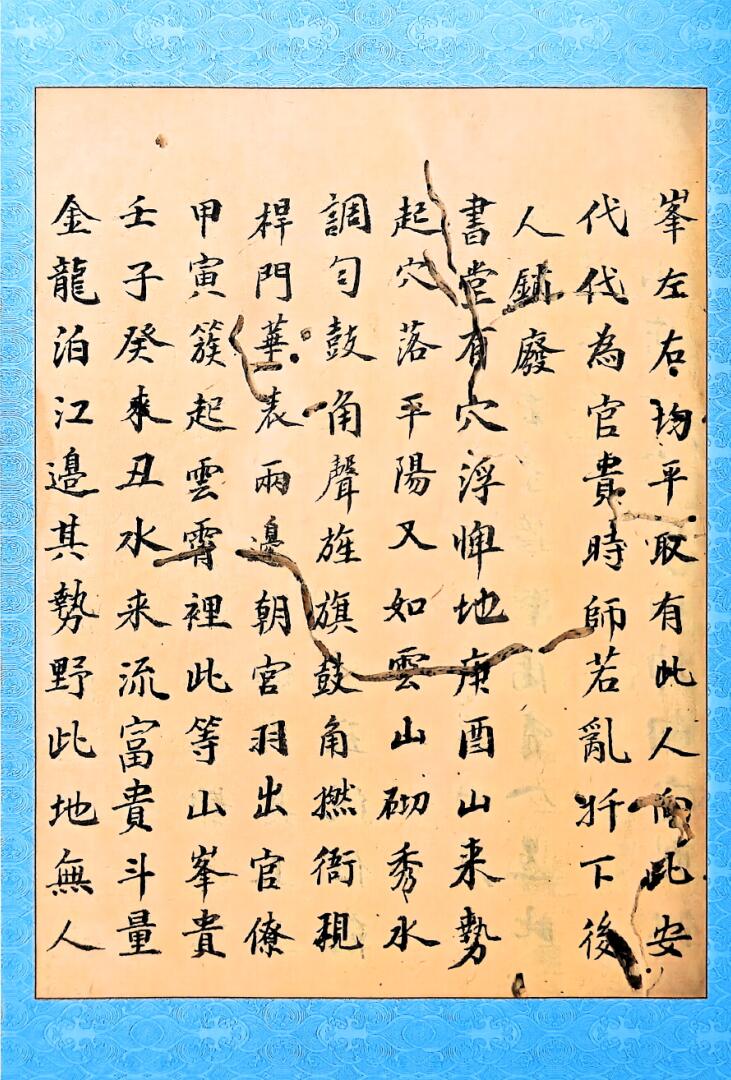 峯左右均平取有此人向此安
代代為官貴時師若亂扦下後
人鎮廢
書堂有穴浮牌地庚酉山来勢
起穴落平陽又如雲山砌秀水
調勻鼓角聲旌旗鼓角撚衙現
桿門華表兩邊朝宮羽出官僚
甲寅簇起雲霄裡此等山峯貴
壬子癸来丑水来流富貴斗量
金龍泊江邊其勢野此地無人